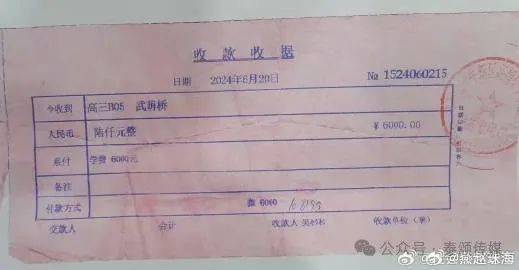 收款收据
日期 2024年6月20日 № 1524060215
今收到 高三B05 武
人民币 陆仟元整 ￥6000.00
系付 学费 6000元
备注
付款方式 微 6000
交款人 会计 收款人 吴 收款单位(章)
公众号·泰颂传媒
@燕赵珠海